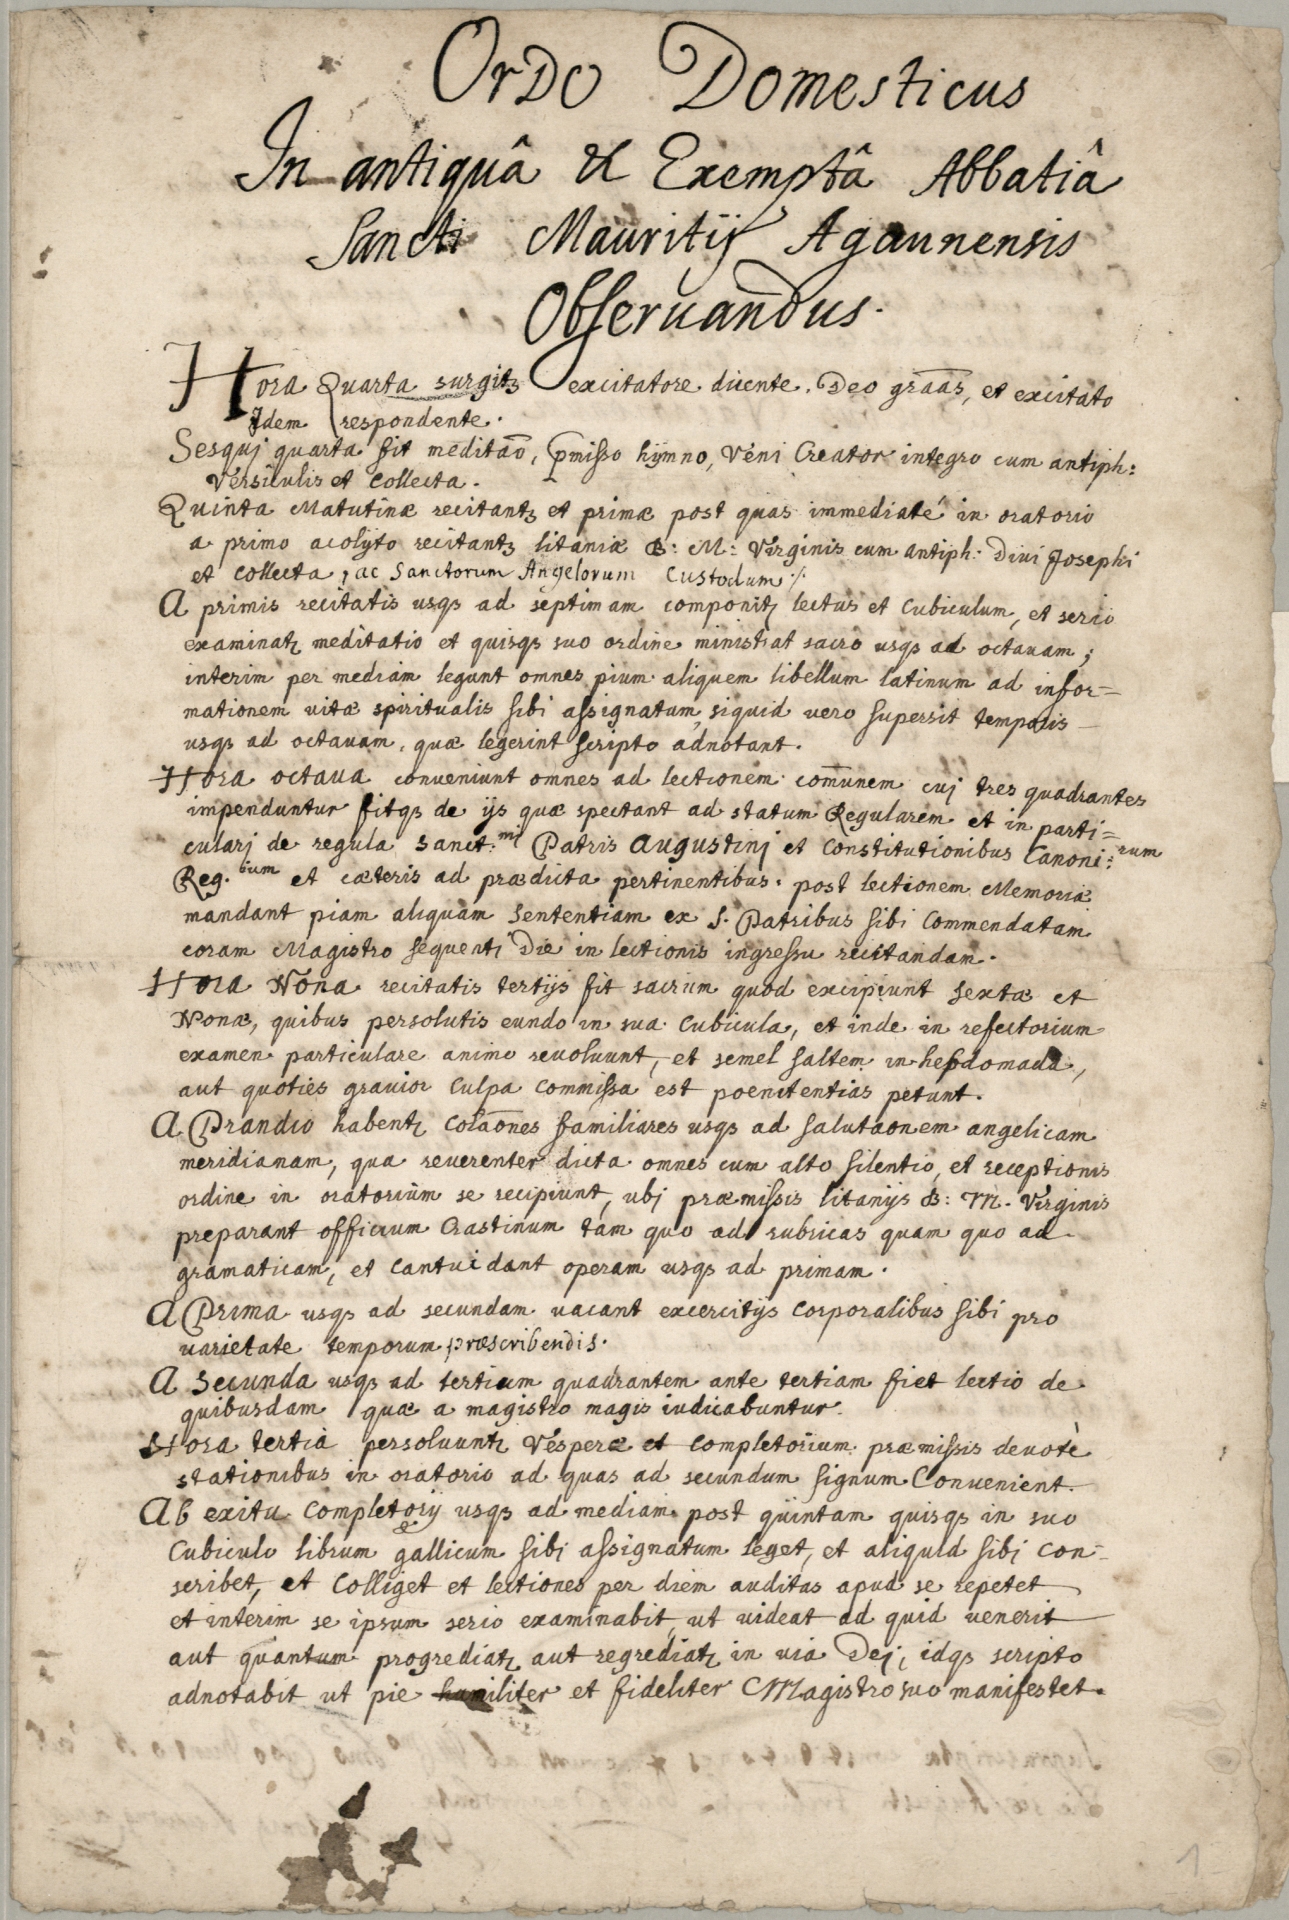 Ordo Domesticus
In antiquâ et Exemptâ Abbatiâ
Sancti Mauritij Agaunensis
Obseruandus.
Hora Quarta surgitʒ excitatore dicente. Deo graas, et excitato
Idem respondente.
Sesquj quarta fit meditaõ, pmisso hijmno, Véni Creator integro cum antiph:
Versiculis et Collecta.
Quinta Matutinæ recitantʒ et primæ post quas immediaté in oratorio
a primo acolÿto recitantʒ litaniæ B: M: Virginis cum antiph: Divi Josephi
et Collecta, ac Sanctorum Angelorum Custodum ./.
A primis recitatis usqs ad septimam componitʒ lectus et Cubiculum, et serio
examinatʒ meditatio et quisqs suo ordine ministrat sacro usqs ad octauam;
interim per mediam legunt omnes pium aliquem libellum latinum ad infor=
mationem uitæ spiritualis sibi assignatum, siquid uero supersit temporis
usqs ad octauam, quæ legerint scripto adnotant.
Hora octaua conueniunt omnes ad lectionem com̃unem cuj tres quadrantes
impenduntur fitqs de ijs quæ spectant ad statum Regularem et in parti=
cularj de regula Sanct.mi Patris Augustinj et Constitutionibus Canoni:rum
Reg.rium et cæteris ad prædicta pertinentibus. post lectionem Memoriæ
mandant piam aliquam Sententiam ex S. Patribus sibi Commendatam
coram Magistro sequenti Die in lectionis ingressu recitandam.
Hora Nona recitatis tertijs fit sacrum quod excipiunt Sextæ et
Nonæ, quibus persolutis eundo in sua Cubicula, et inde in refectorium
examen particulare animo reuoluunt, et semel saltem in hebdomada,
aut quoties grauior Culpa Commissa est poenitentias petunt.
A Prandio habentʒ Colaões familiares usqs ad salutaonem angelicam
meridianam, qua reuerenter dicta omnes cum alto silentio, et receptionis
ordine in oratorium se recipiunt, ubj præmissis litanijs B: M. Virginis
preparant officium Crastinum tam quo ad rubricas quam quo ad
gramaticam, et Cantui dant operam usqs ad primam.
A Prima usqs ad secundam uacant excercitijs Corporalibus sibi pro
uarietate temporum præscribendis.
A Secunda usqs ad tertium quadrantem ante tertiam fiet lectio de
quibusdam quæ a magistro magis iudicabuntur.
Hora tertia persoluuntʒ Vésperæ et Completorium præmissis deuotè
stationibus in oratorio ad quas ad secundum signum Conuenient.
Ab exitu Completorij usqs ad mediam post quintam quisqs in suo
Cubiculo librum gallicum sibj assignatum leget, et aliquid sibj Con=
scribet, et Colliget et lectiones per diem auditas apud se repetet
et interim se ipsum serio examinabit, ut uideat ad quid uenerit
aut quantum progrediatʒ aut regrediatʒ in uia Dej, idqs scripto
adnotabit ut pie humiliter et fideliter Magistro suo manifestet.
1